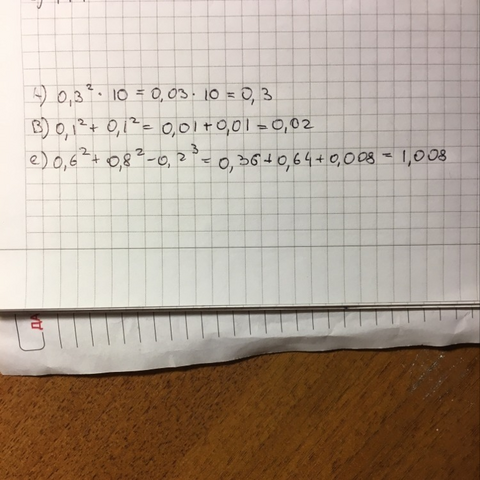 А) 0,3² · 10 = 0,03 · 10 = 0,3
В) 0,1² + 0,1² = 0,01 + 0,01 = 0,02
е) 0,6² + 0,8² - 0,2³ = 0,36 + 0,64 + 0,008 = 1,008
ДА